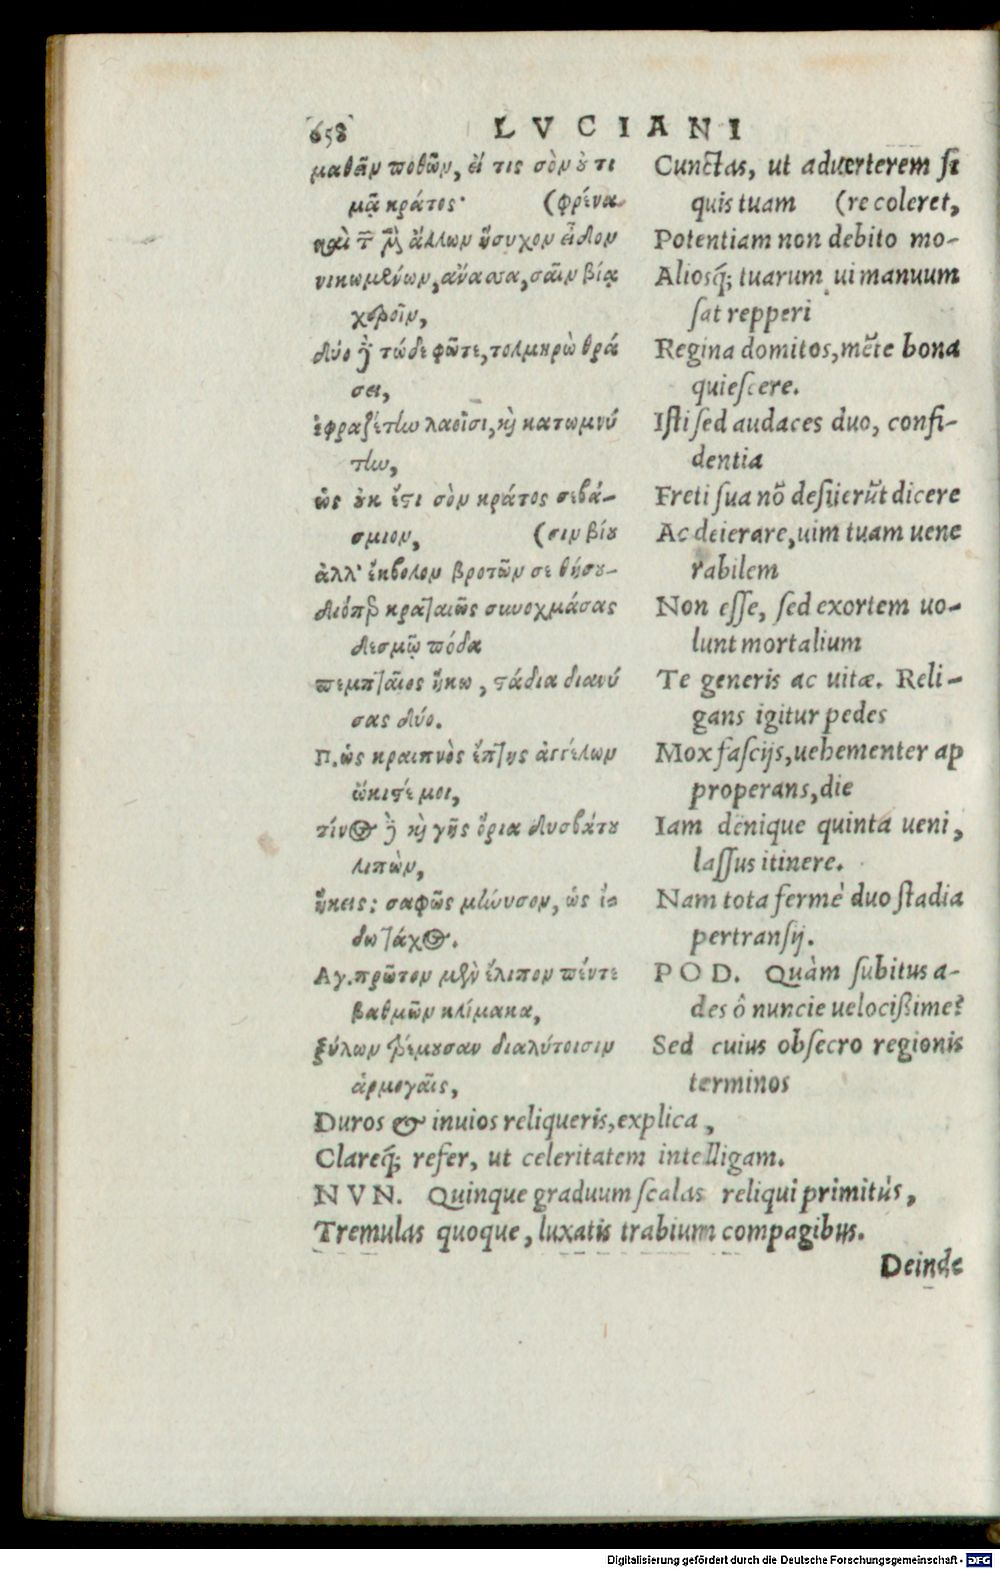 658 LVCIANI
μαθεῖν ποθῶν, εἴ τις σὸν οὐ τι
μᾷ κράτος· (φρένα
καὶ τ̅ μ̅ ἄλλων ἥσυχον εἶδον
νικωμένων, ἄνασσα, σαῖν βίᾳ
χεροῖν,
δύο δ̀ τώδε φῶτε, τολμηρῷ θρά
σει,
ἐφραζέτην λαοῖσι, καὶ κατωμνύ
την,
ὡς οὐκ ἔτι σὸν κράτος σεβά-
σμιον, (σιν βίου
ἀλλ' ἔκβολον βροτῶν σε θήσου-
διόπερ κραταιῶς συνοχμάσας
δεσμῷ πόδα
πεμπταῖος ἥκω, στάδια διανύ
σας δύο.
Π. ὡς κραιπνὸς ἔπτης ἀγγέλων
ὤκιστέ μοι,
τίνος δ̀ καὶ γῆς ὅρια δυσβάτου
λιπὼν,
ἥκεις: σαφῶς μήνυσον, ὡς εἰ-
δῶ τάχος.
Αγ. πρῶτον μὲν ἔλιπον πέντε
βαθμῶν κλίμακα,
ξύλων τρέμουσαν διαλύτοισιν
ἁρμογαῖς,
Cunctas, ut aduerterem si
quis tuam (recoleret,
Potentiam non debito mo-
Aliosq́; tuarum ui manuum
sat repperi
Regina domitos, mẽte bona
quiescere.
Isti sed audaces duo, confi-
dentia
Freti sua nõ desijerũt dicere
Ac deierare, uim tuam uene
rabilem
Non esse, sed exortem uo-
lunt mortalium
Te generis ac uitæ. Reli-
gans igitur pedes
Mox fascijs, uehementer ap
properans, die
Iam denique quinta ueni,
lassus itinere.
Nam tota fermè duo stadia
pertransij.
POD. Quàm subitus a-
des ô nuncie uelocißime?
Sed cuius obsecro regionis
terminos
Duros & inuios reliqueris, explica,
Clareq́; refer, ut celeritatem intelligam.
NVN. Quinque graduum scalas reliqui primitùs,
Tremulas quoque, luxatis trabium compagibus.
Deinde
Digitalisierung gefördert durch die Deutsche Forschungsgemeinschaft - DFG